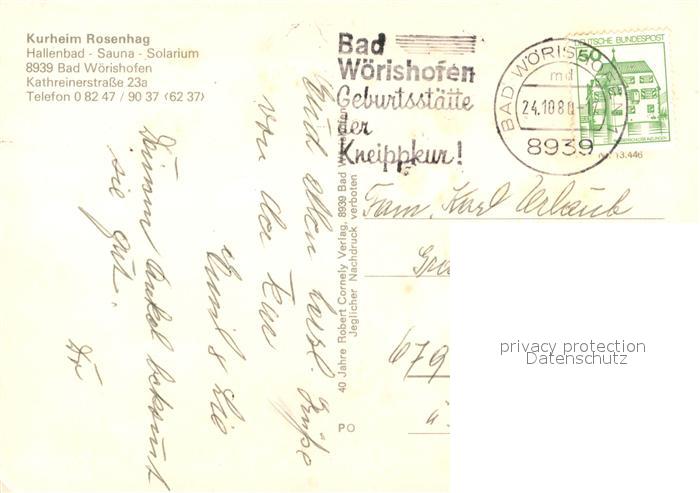 Kurheim Rosenhag
Hallenbad - Sauna - Solarium
8939 Bad Wörishofen
Kathreinerstraße 23a
Telefon 0 82 47 / 90 37 (62 37)
Bad
Wörishofen
Geburtsstätte
der
Kneippkur!
BAD WÖRISHOFEN
md
24.10.80
8939
DEUTSCHE BUNDESPOST
50
Nr. 13.446
Euch allen herzl. Grüße
von der Kur
sie gut.
40 Jahre Robert Cornely Verlag, 8939 Bad Wörishofen
Jeglicher Nachdruck verboten
Fam. Karl Urlaub
679
PO
privacy protection
Datenschutz